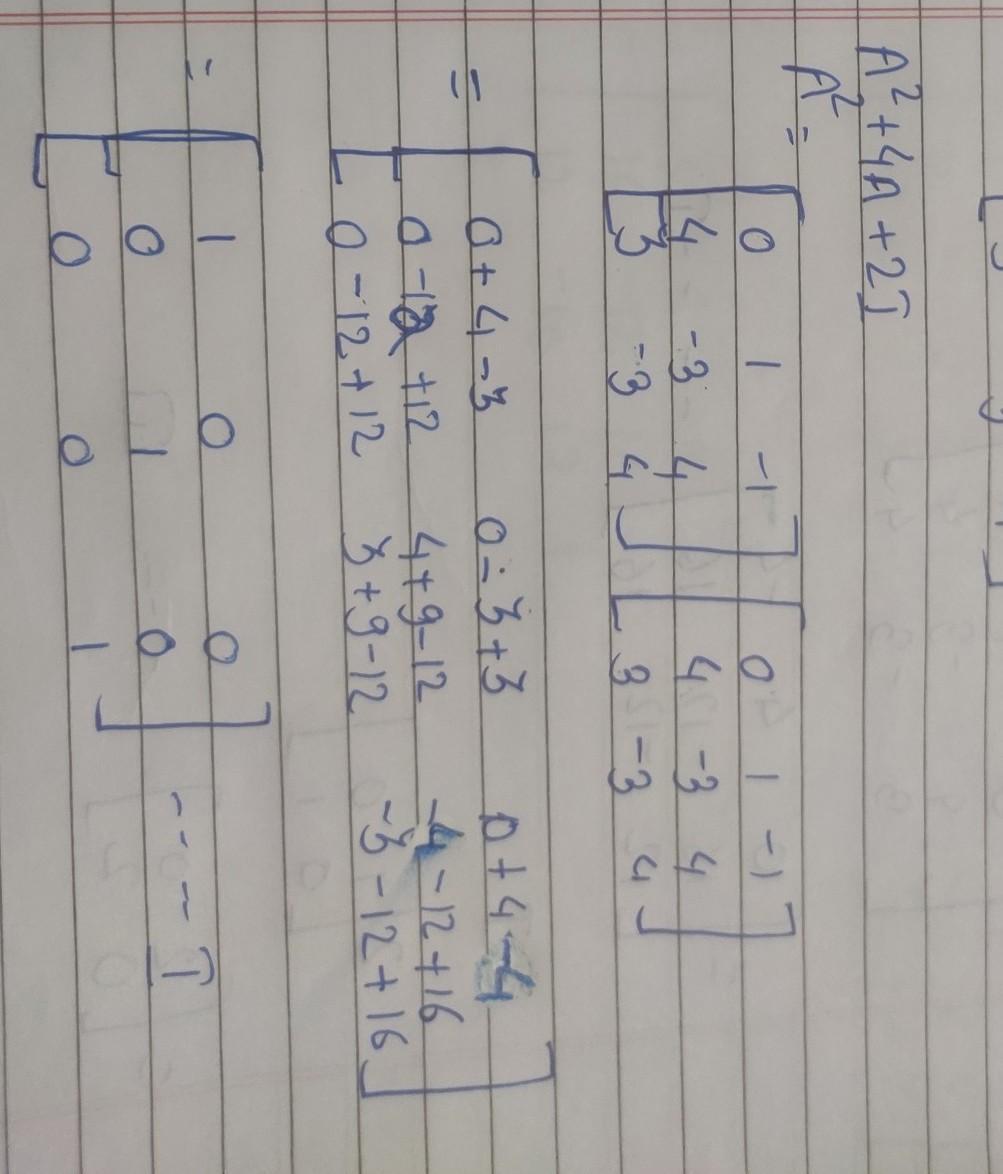 A² + 4A + 2I
A² = [ 0 1 -1 ] [ 0 1 -1 ]
4 -3 4 4 -3 4
3 -3 4 3 -3 4
= [ 0+4-3 0-3+3 0+4-4 ]
0-12+12 4+9-12 -4-12+16
0-12+12 3+9-12 -3-12+16
= [ 1 0 0 ]
0 1 0 ---- I
0 0 1